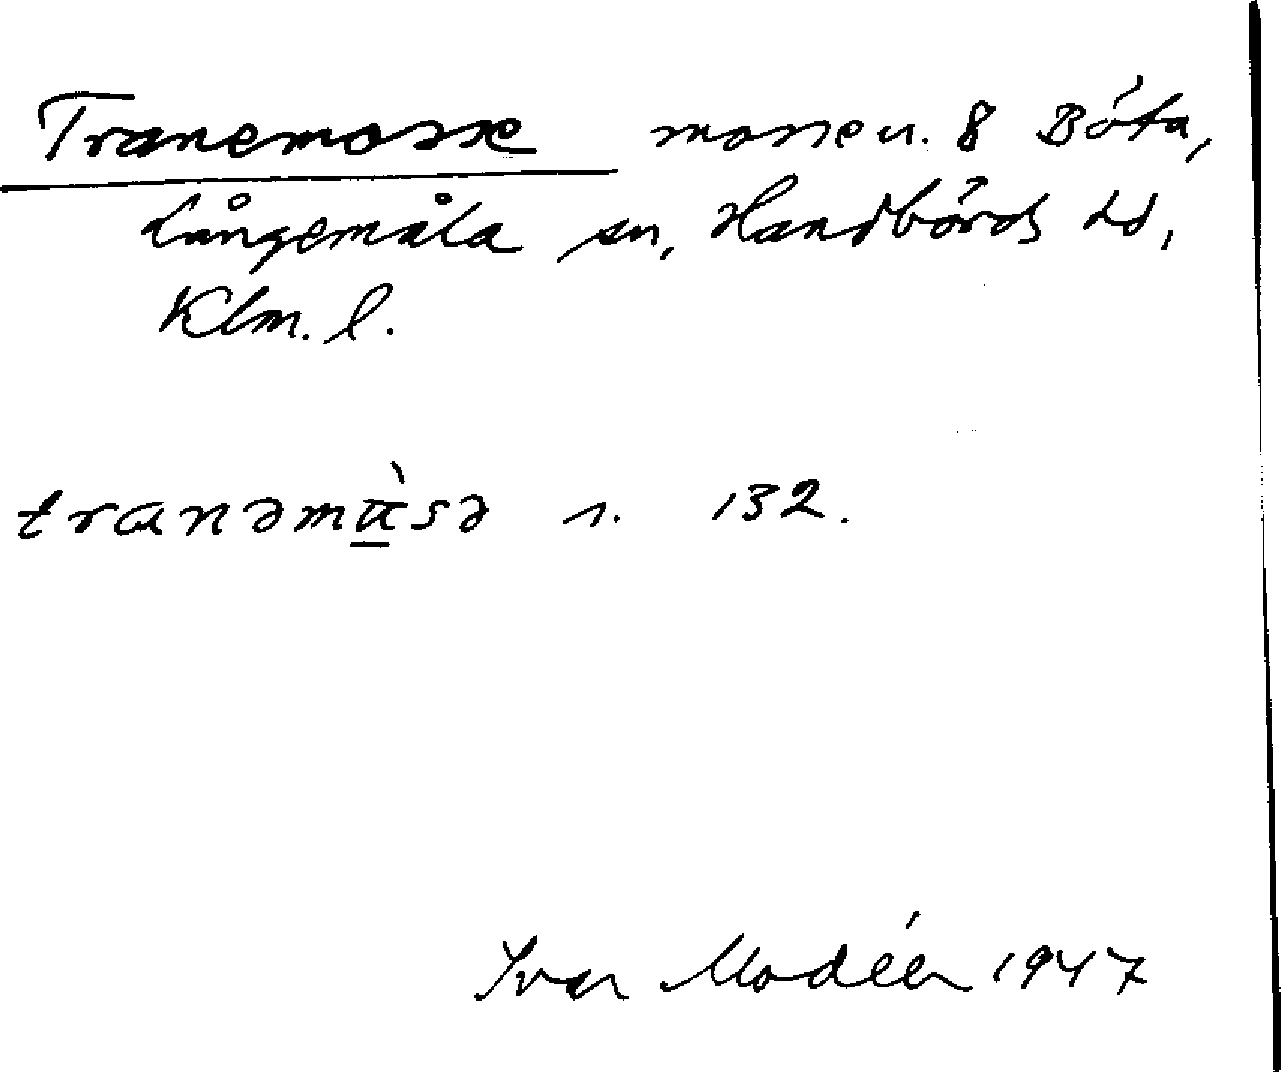 Tranemosse mosse u. 8 Bóta,
Långemåla sn, Handbörds hd,
Klm. l.
tranəmɯ̲̀sə s. 132.
Ivar Modéer 1947